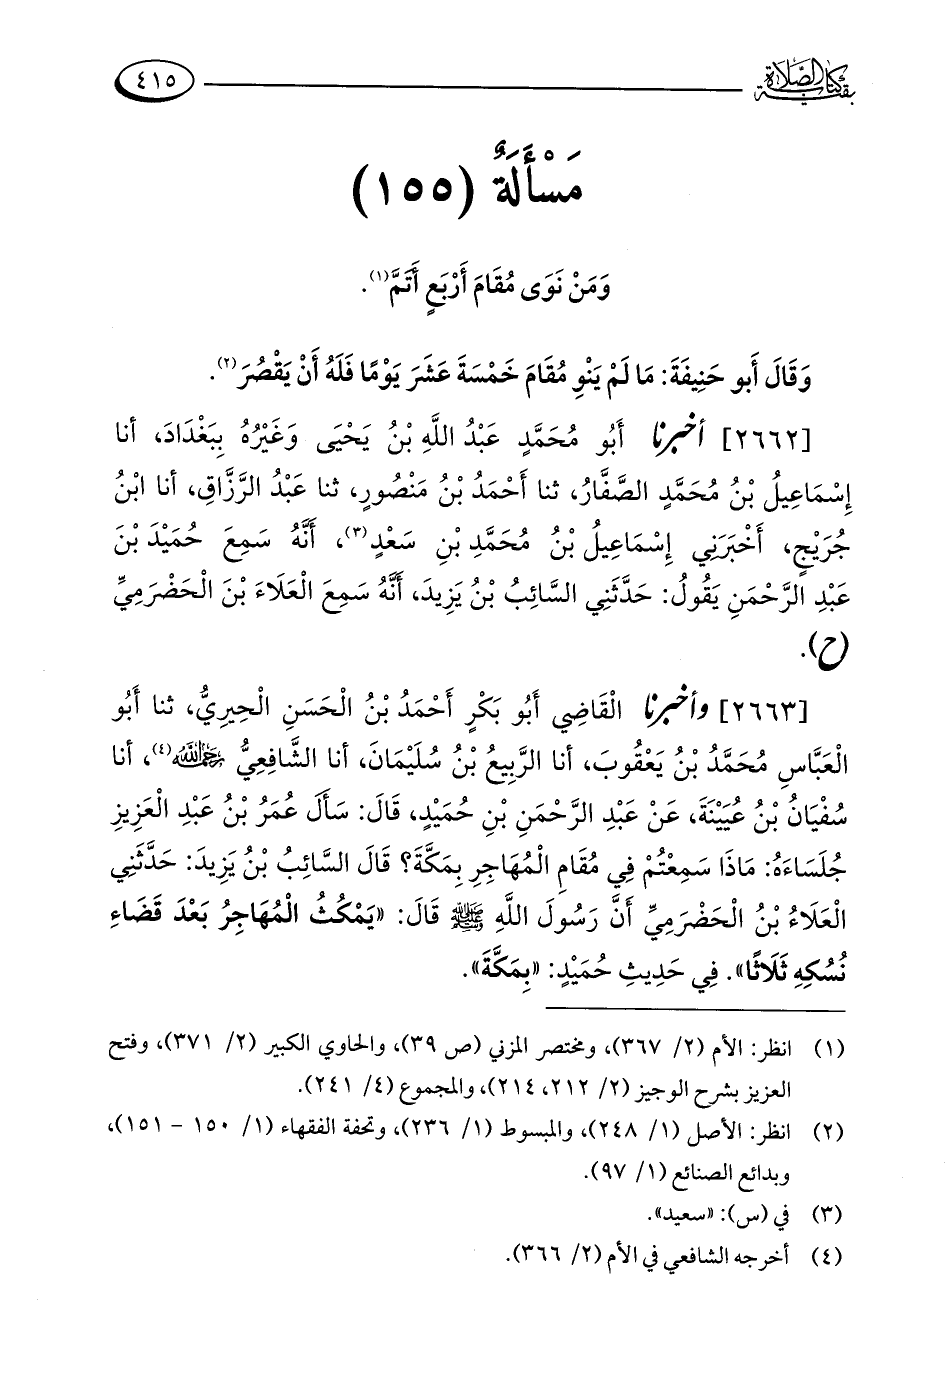 بقية كتاب الصلاة
٤١٥
مَسْأَلَةٌ (١٥٥)
وَمَنْ نَوَى مُقَامَ أَرْبَعٍ أَتَمَّ(١).
وَقَالَ أَبو حَنِيفَةَ: مَا لَمْ يَنْوِ مُقَامَ خَمْسَةَ عَشَرَ يَوْمًا فَلَهُ أَنْ يَقْصُرَ(٢).
[٢٦٦٢] أخبرنا أَبُو مُحَمَّدٍ عَبْدُ اللَّهِ بْنُ يَحْيَى وَغَيْرُهُ بِبَغْدَادَ، أنا
إِسْمَاعِيلُ بْنُ مُحَمَّدٍ الصَّفَّارُ، ثنا أَحْمَدُ بْنُ مَنْصُورٍ، ثنا عَبْدُ الرَّزَّاقِ، أنا ابْنُ
جُرَيْجٍ، أَخْبَرَنِي إِسْمَاعِيلُ بْنُ مُحَمَّدِ بْنِ سَعْدٍ(٣)، أَنَّهُ سَمِعَ حُمَيْدَ بْنَ
عَبْدِ الرَّحْمَنِ يَقُولُ: حَدَّثَنِي السَّائِبُ بْنُ يَزِيدَ، أَنَّهُ سَمِعَ الْعَلَاءَ بْنَ الْحَضْرَمِيِّ
(ح).
[٢٦٦٣] وأخبرنا الْقَاضِي أَبُو بَكْرٍ أَحْمَدُ بْنُ الْحَسَنِ الْحِيرِيُّ، ثنا أَبُو
الْعَبَّاسِ مُحَمَّدُ بْنُ يَعْقُوبَ، أنا الرَّبِيعُ بْنُ سُلَيْمَانَ، أنا الشَّافِعِيُّ رَحِمَهُ اللَّهُ(٤)، أنا
سُفْيَانُ بْنُ عُيَيْنَةَ، عَنْ عَبْدِ الرَّحْمَنِ بْنِ حُمَيْدٍ، قَالَ: سَأَلَ عُمَرُ بْنُ عَبْدِ الْعَزِيزِ
جُلَسَاءَهُ: مَاذَا سَمِعْتُمْ فِي مُقَامِ الْمُهَاجِرِ بِمَكَّةَ؟ قَالَ السَّائِبُ بْنُ يَزِيدَ: حَدَّثَنِي
الْعَلَاءُ بْنُ الْحَضْرَمِيِّ أَنَّ رَسُولَ اللَّهِ ﷺ قَالَ: «يَمْكُثُ الْمُهَاجِرُ بَعْدَ قَضَاءِ
نُسُكِهِ ثَلَاثًا». فِي حَدِيثِ حُمَيْدٍ: «بِمَكَّةَ».
(١) انظر: الأم (٢/ ٣٦٧)، ومختصر المزني (ص ٣٩)، والحاوي الكبير (٢/ ٣٧١)، وفتح
العزيز بشرح الوجيز (٢/ ٢١٢، ٢١٤)، والمجموع (٤/ ٢٤١).
(٢) انظر: الأصل (١/ ٢٤٨)، والمبسوط (١/ ٢٣٦)، وتحفة الفقهاء (١/ ١٥٠ - ١٥١)،
وبدائع الصنائع (١/ ٩٧).
(٣) في (س): «سعيد».
(٤) أخرجه الشافعي في الأم (٢/ ٣٦٦).